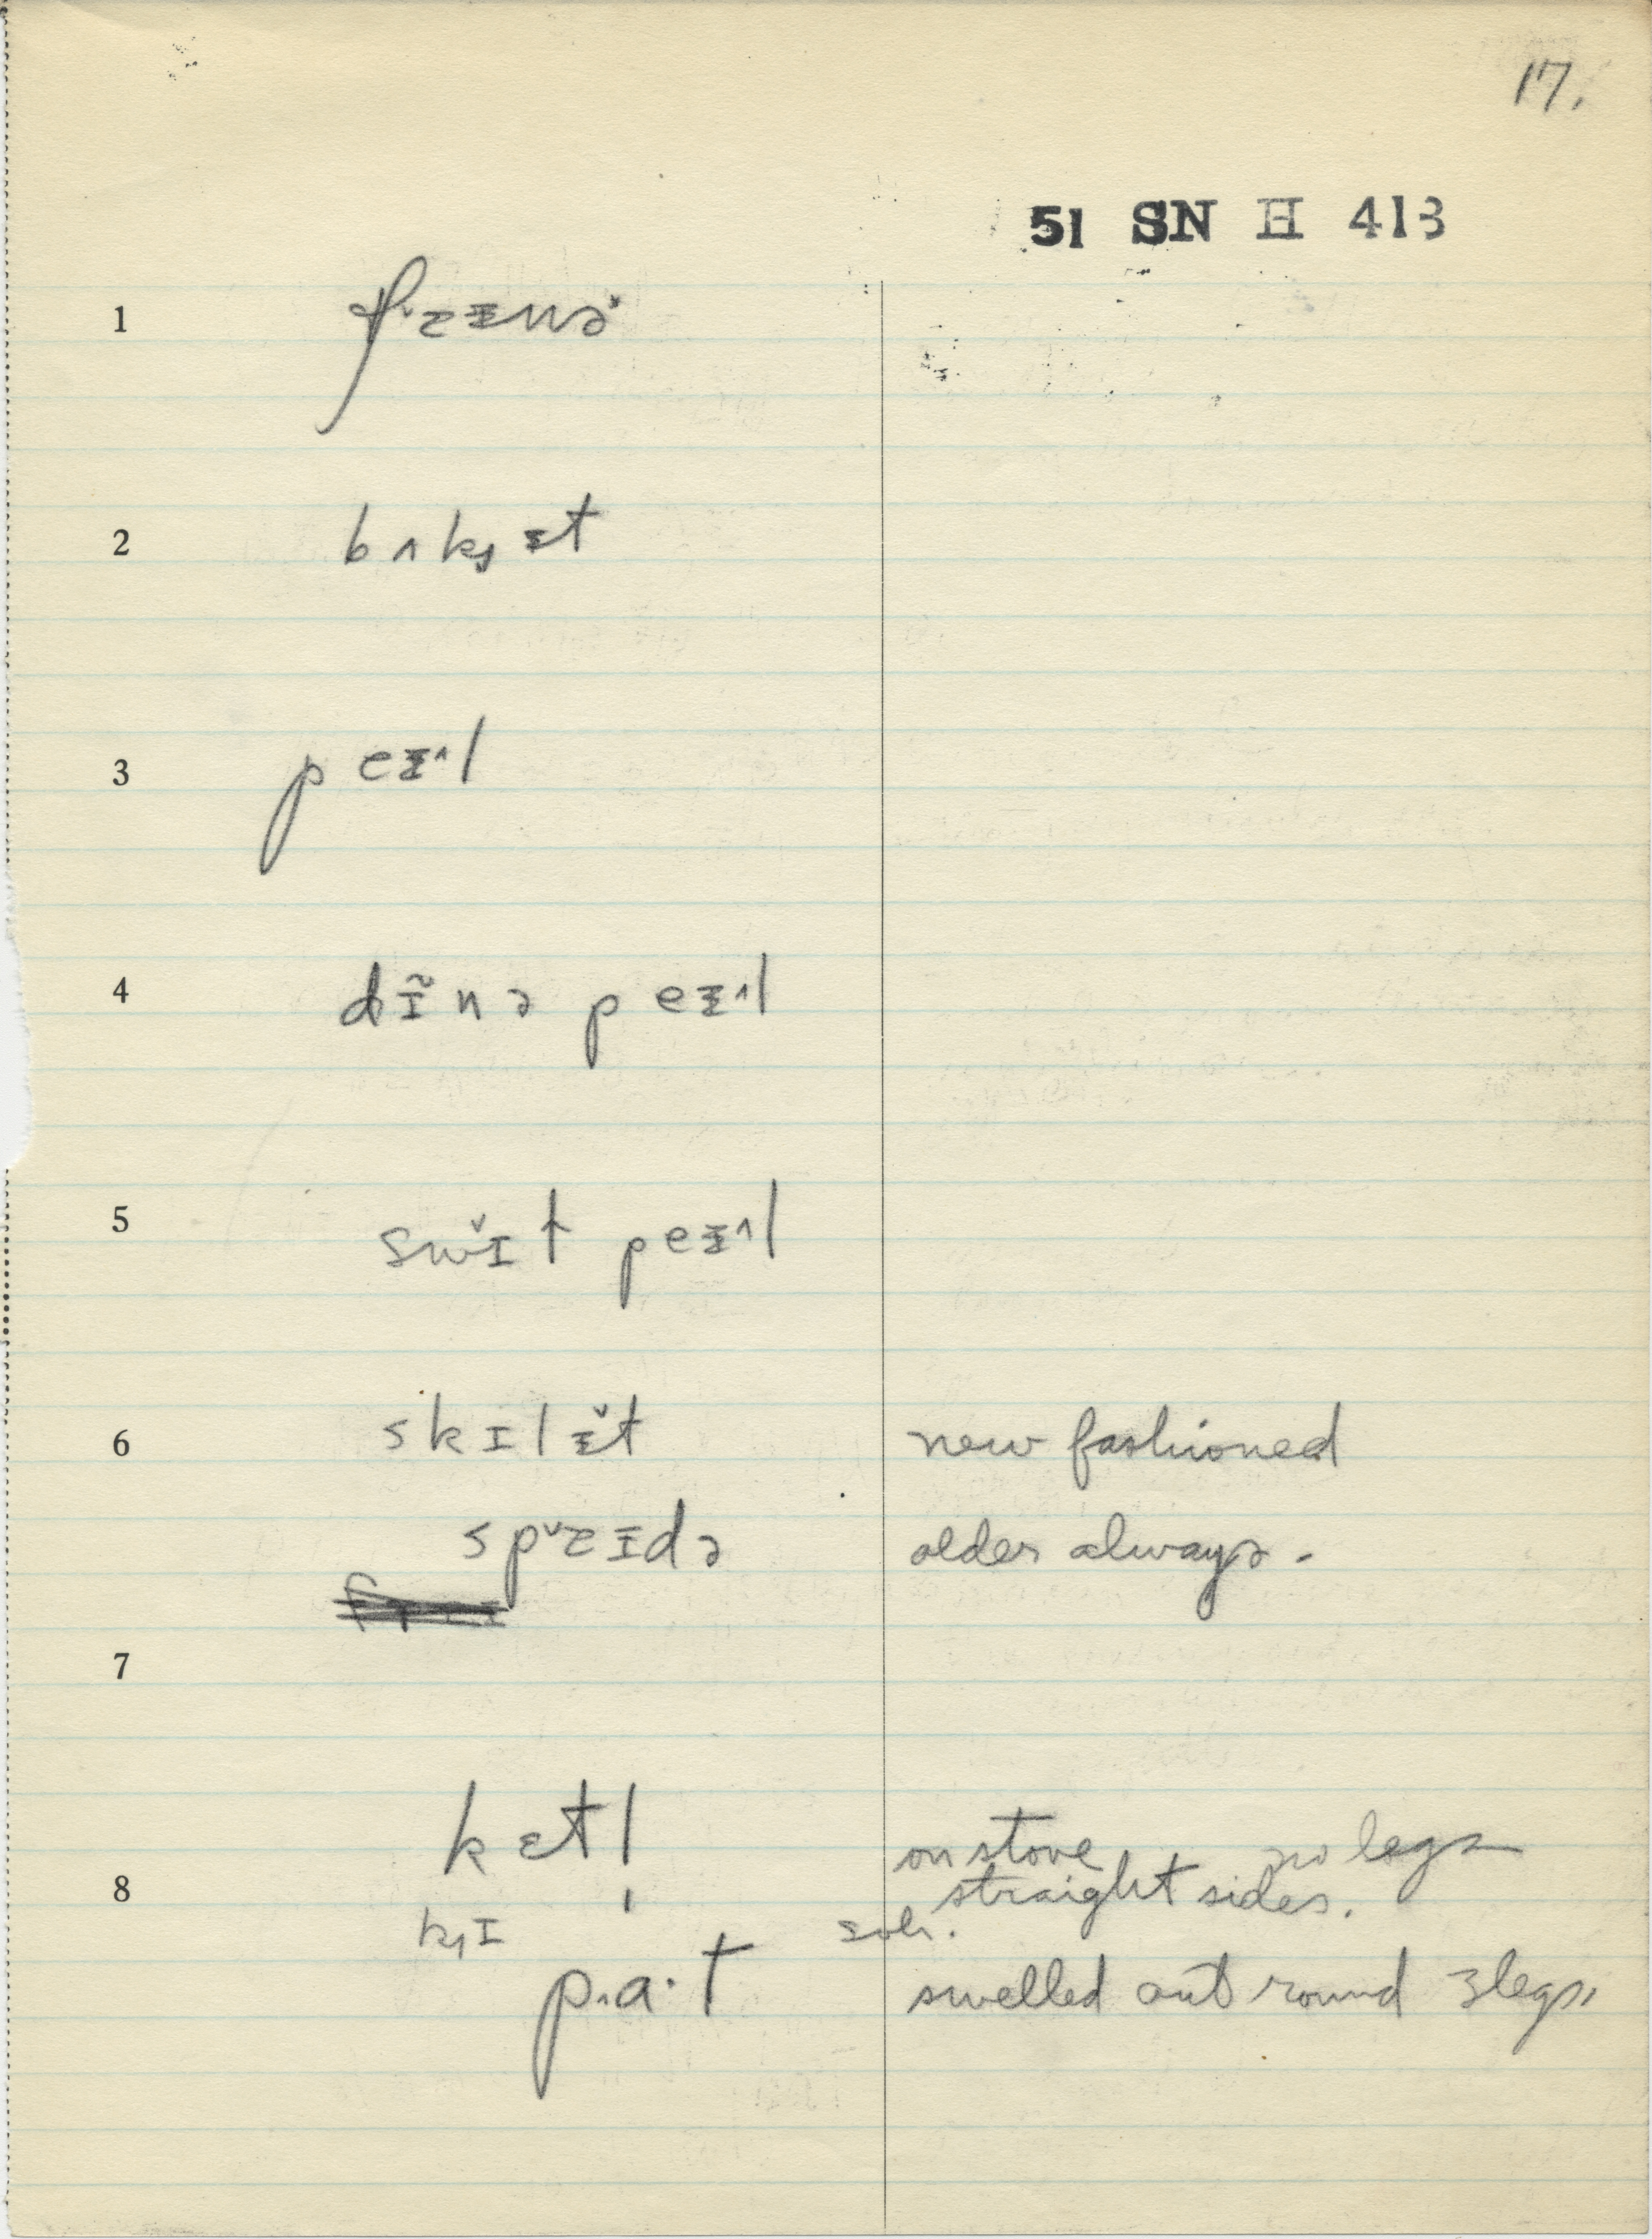 17.
51 SN H 413
1
2 bʌkɪt
3 peɪl
4 dĩnə peɪl
5 swɪ̆t peɪl
6 skɪlɪ̆t new fashioned
older always.
7
ketl on stove no legs
8 straight sides.
p.a.t swelled out round 3 legs,